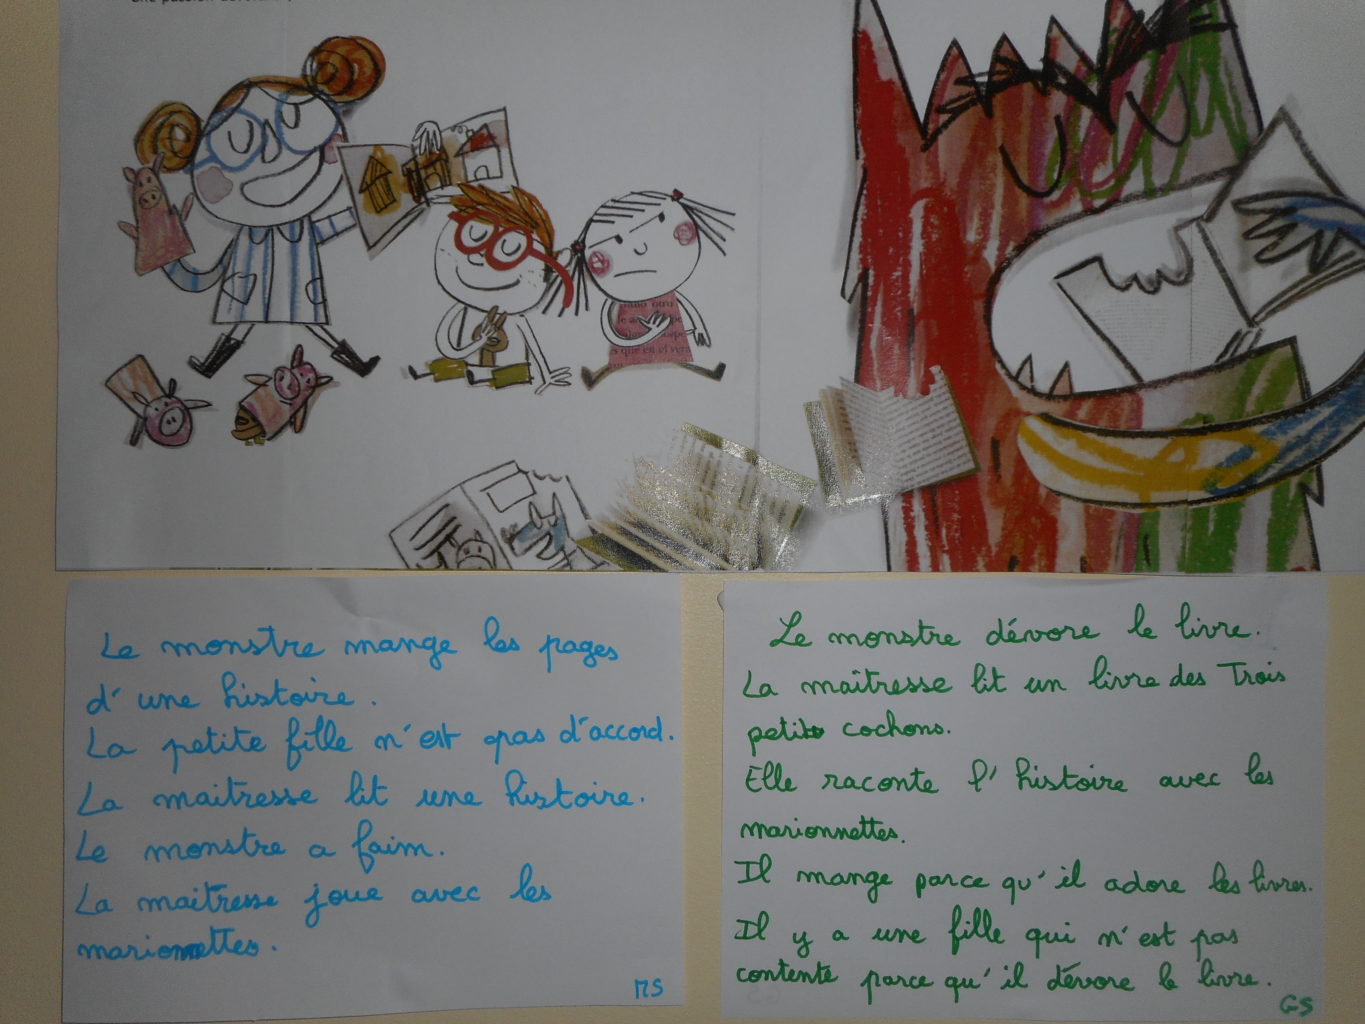 Le monstre mange les pages
d'une histoire.
La petite fille n'est pas d'accord.
La maitresse lit une histoire.
Le monstre a faim.
La maitresse joue avec les
marionnettes.
MS
Le monstre dévore le livre.
La maîtresse lit un livre des Trois
petits cochons.
Elle raconte l'histoire avec les
marionnettes.
Il mange parce qu'il adore les livres.
Il y a une fille qui n'est pas
contente parce qu'il dévore le livre.
GS